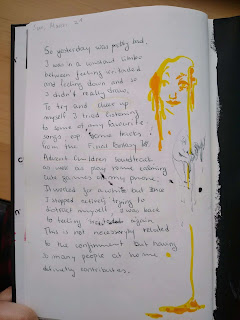 So yesterday was pretty bad,
I was in a constant limbo
between feeling
and feeling down and so
I didn't really draw.
To try and cheer up
myself I tried listening
to some of my favourite
songs, eg some tracks
from the Final Fantasy VII
Advent Children soundtrack
as well as play some calming
cute games on my phone.
It worked for a while but once
I stopped actively trying to
distract myself, I was back
to feeling again.
This is not necessarily related
to the confinement but having
so many people at home
definitely contributes.